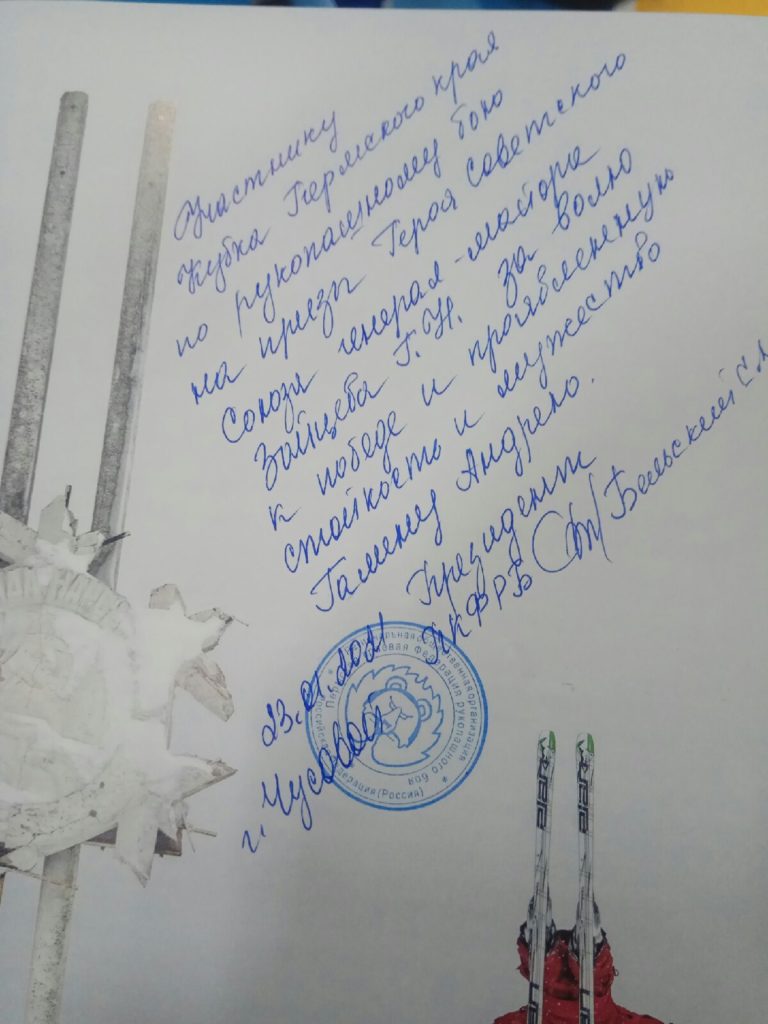 Участнику
Кубка Пермского края
по рукопашному бою
на призы Героя Советского
Союза генерал-майора
Зайцева Г.Н. за волю
к победе и проявленную
стойкость и мужество
Галинец Андрею.
Президент
ПКФРБ Бельский С.А
23.01.2021
г. Чусовой
Пермская краевая Федерация рукопашного боя
Федерация (Россия)